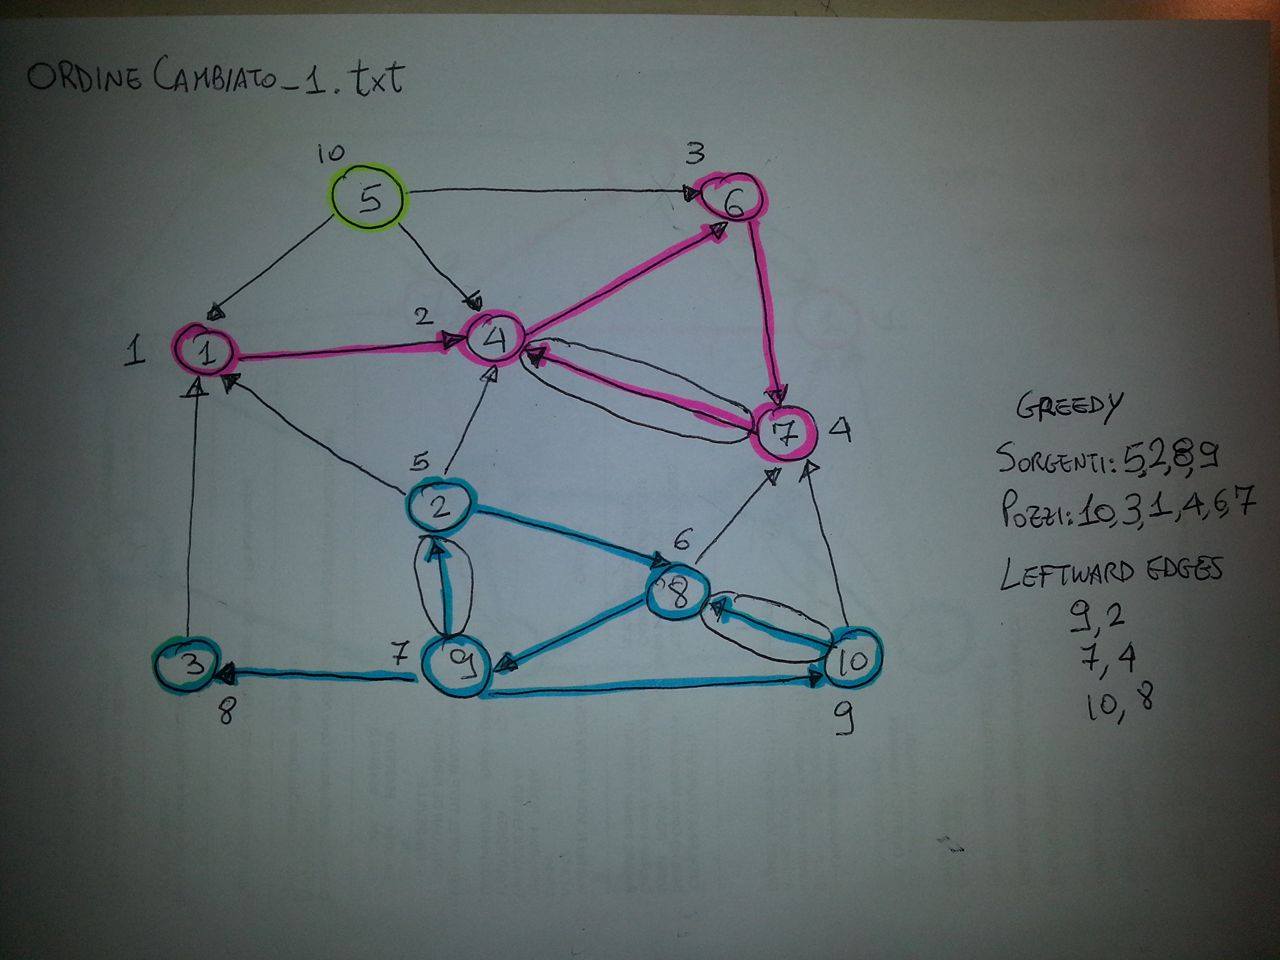 ORDINE CAMBIATO_1.txt
10
3
5
6
2
1
1
4
7
4
5
2
6
8
GREEDY
SORGENTI: 5,2,8,9
POZZI: 10,3,1,4,6,7
LEFTWARD EDGES
9,2
7,4
10,8
3
7
9
10
8
9